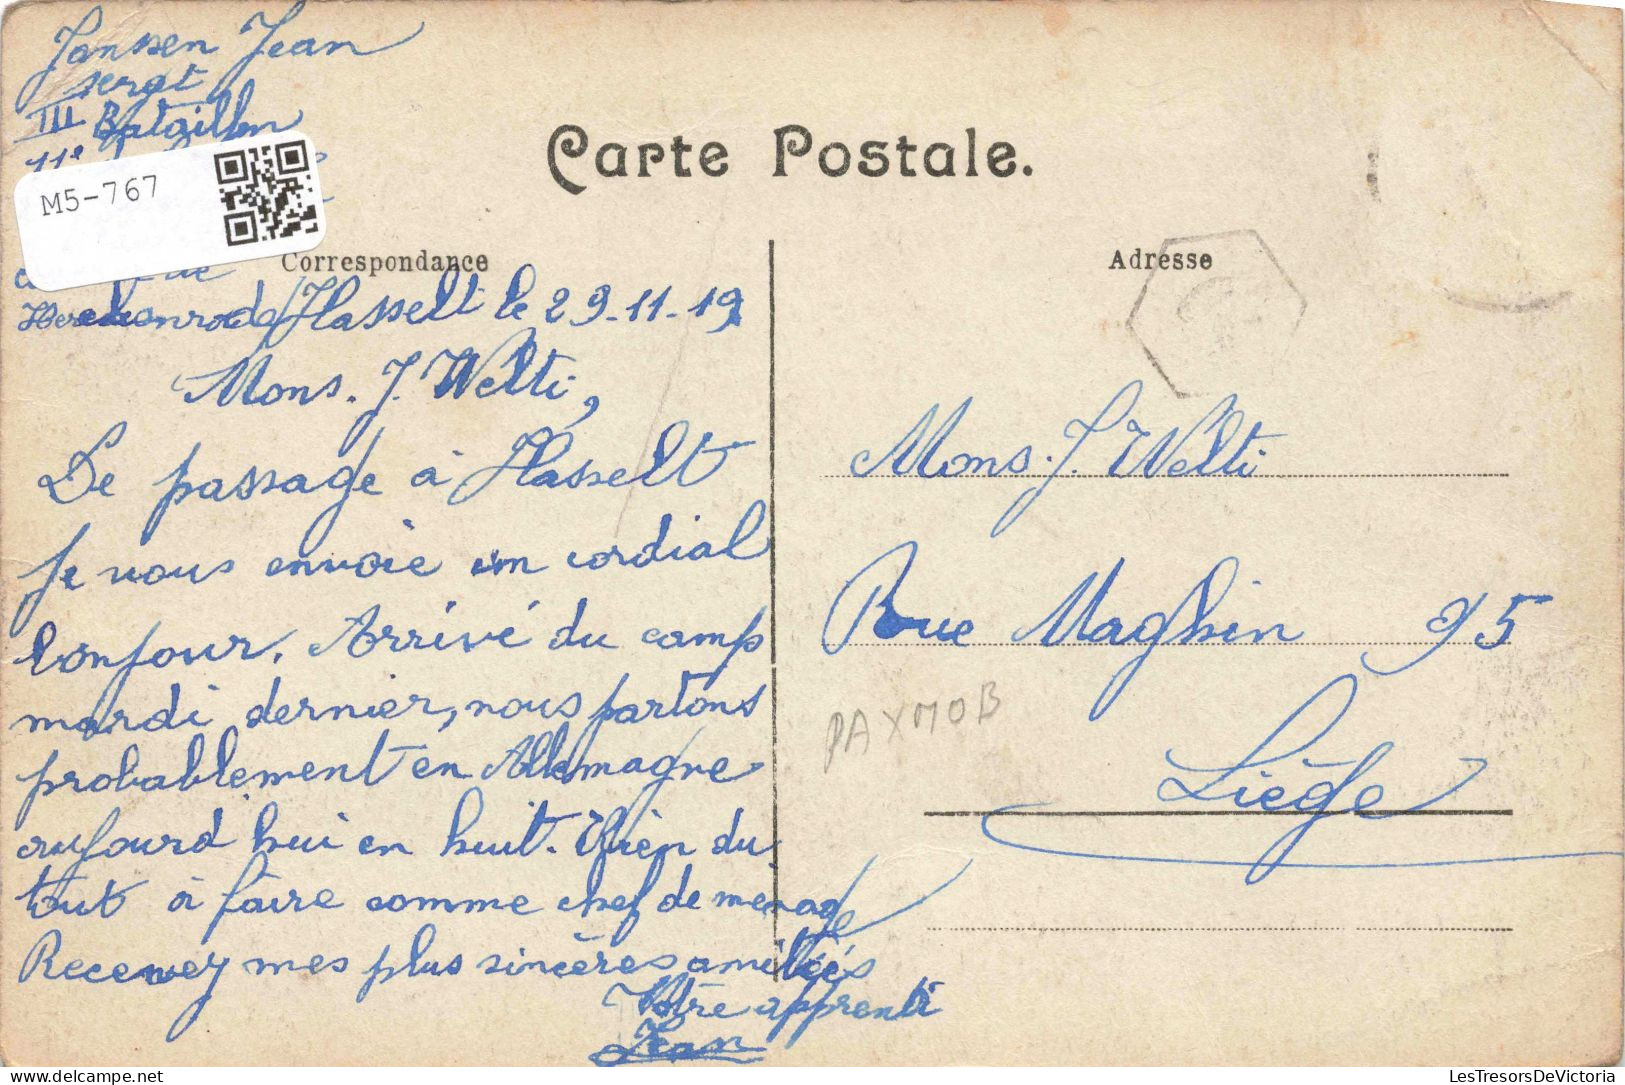 Janssen Jean
sergt
III Bataillon
11e
M5-767
Carte Postale.
Correspondance
Adresse
Herckenrode/Hasselt le 29-11-19
Mons. J. Welti,
De passage à Hasselt
je vous envoie un cordial
bonjour. Arrivé du camp
mardi dernier, nous partons
probablement en Allemagne
aujourd'hui en huit. Rien du
tout à faire comme chef de menage
Recevez mes plus sincères amitiés
Votre apprenti
Jean
Mons. J. Welti
Rue Maghin 95
Liège
PAXMOB
LesTresorsDeVictoria